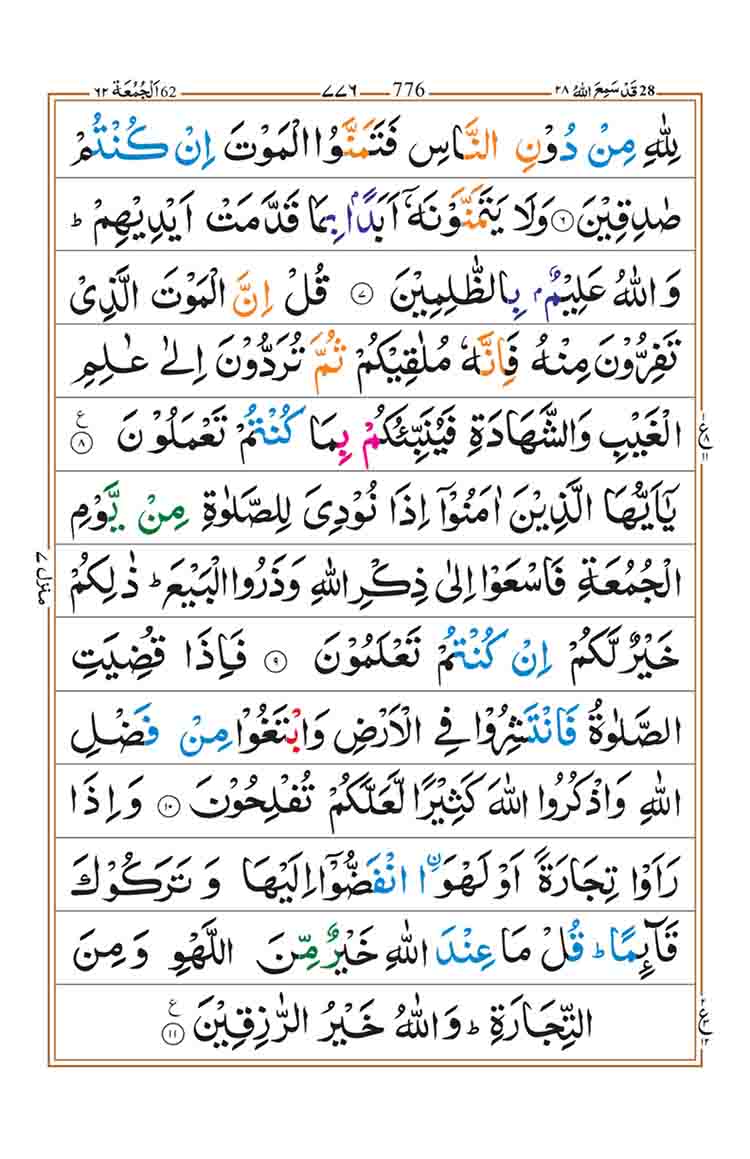 28 قَدْ سَمِعَ اللّٰهُ ٢٨
776 ٧٧٦
62 اَلْجُمُعَة ٦٢
لِلّٰهِ مِنْ دُوْنِ النَّاسِ فَتَمَنَّوُا الْمَوْتَ اِنْ كُنْتُمْ
صٰدِقِيْنَ ۶ وَلَا يَتَمَنَّوْنَهٗۤ اَبَدًۢا بِمَا قَدَّمَتْ اَيْدِيْهِمْ ؕ
وَاللّٰهُ عَلِيْمٌۢ بِالظّٰلِمِيْنَ ۷ قُلْ اِنَّ الْمَوْتَ الَّذِىْ
تَفِرُّوْنَ مِنْهُ فَاِنَّهٗ مُلٰقِيْكُمْ ثُمَّ تُرَدُّوْنَ اِلٰى عٰلِمِ
الْغَيْبِ وَالشَّهَادَةِ فَيُنَبِّئُكُمْ بِمَا كُنْتُمْ تَعْمَلُوْنَ ۸ ع
يٰۤاَيُّهَا الَّذِيْنَ اٰمَنُوْۤا اِذَا نُوْدِىَ لِلصَّلٰوةِ مِنْ يَّوْمِ
الْجُمُعَةِ فَاسْعَوْا اِلٰى ذِكْرِ اللّٰهِ وَذَرُوا الْبَيْعَ ؕ ذٰلِكُمْ
خَيْرٌ لَّكُمْ اِنْ كُنْتُمْ تَعْلَمُوْنَ ۹ فَاِذَا قُضِيَتِ
الصَّلٰوةُ فَانْتَشِرُوْا فِى الْاَرْضِ وَابْتَغُوْا مِنْ فَضْلِ
اللّٰهِ وَاذْكُرُوا اللّٰهَ كَثِيْرًا لَّعَلَّكُمْ تُفْلِحُوْنَ ۱۰ وَاِذَا
رَاَوْا تِجَارَةً اَوْ لَهْوَا ۨانْفَضُّوْۤا اِلَيْهَا وَتَرَكُوْكَ
قَآئِمًا ؕ قُلْ مَا عِنْدَ اللّٰهِ خَيْرٌ مِّنَ اللَّهْوِ وَمِنَ
التِّجَارَةِ ؕ وَاللّٰهُ خَيْرُ الرّٰزِقِيْنَ ۱۱ ع
منزل ۷